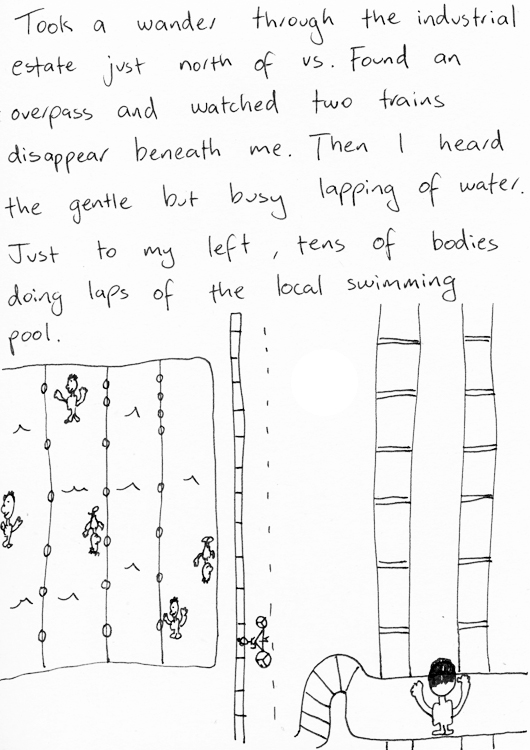 Took a wander through the industrial
estate just north of us. Found an
overpass and watched two trains
disappear beneath me. Then I heard
the gentle but busy lapping of water.
Just to my left, tens of bodies
doing laps of the local swimming
pool.